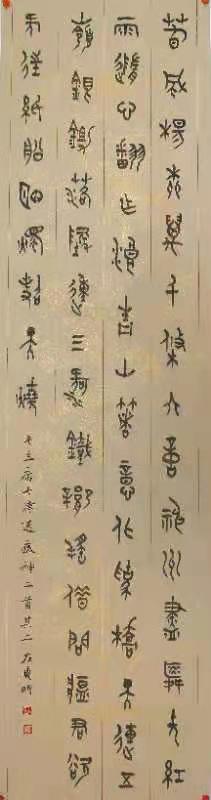 春風楊柳萬千條六億神州盡舜堯紅
雨隨心翻作浪青山著意化為橋天連五
嶺銀鋤落地動三河鐵臂搖借問瘟君欲
何往紙船明燭照天燒
毛主席七律送瘟神二首其二